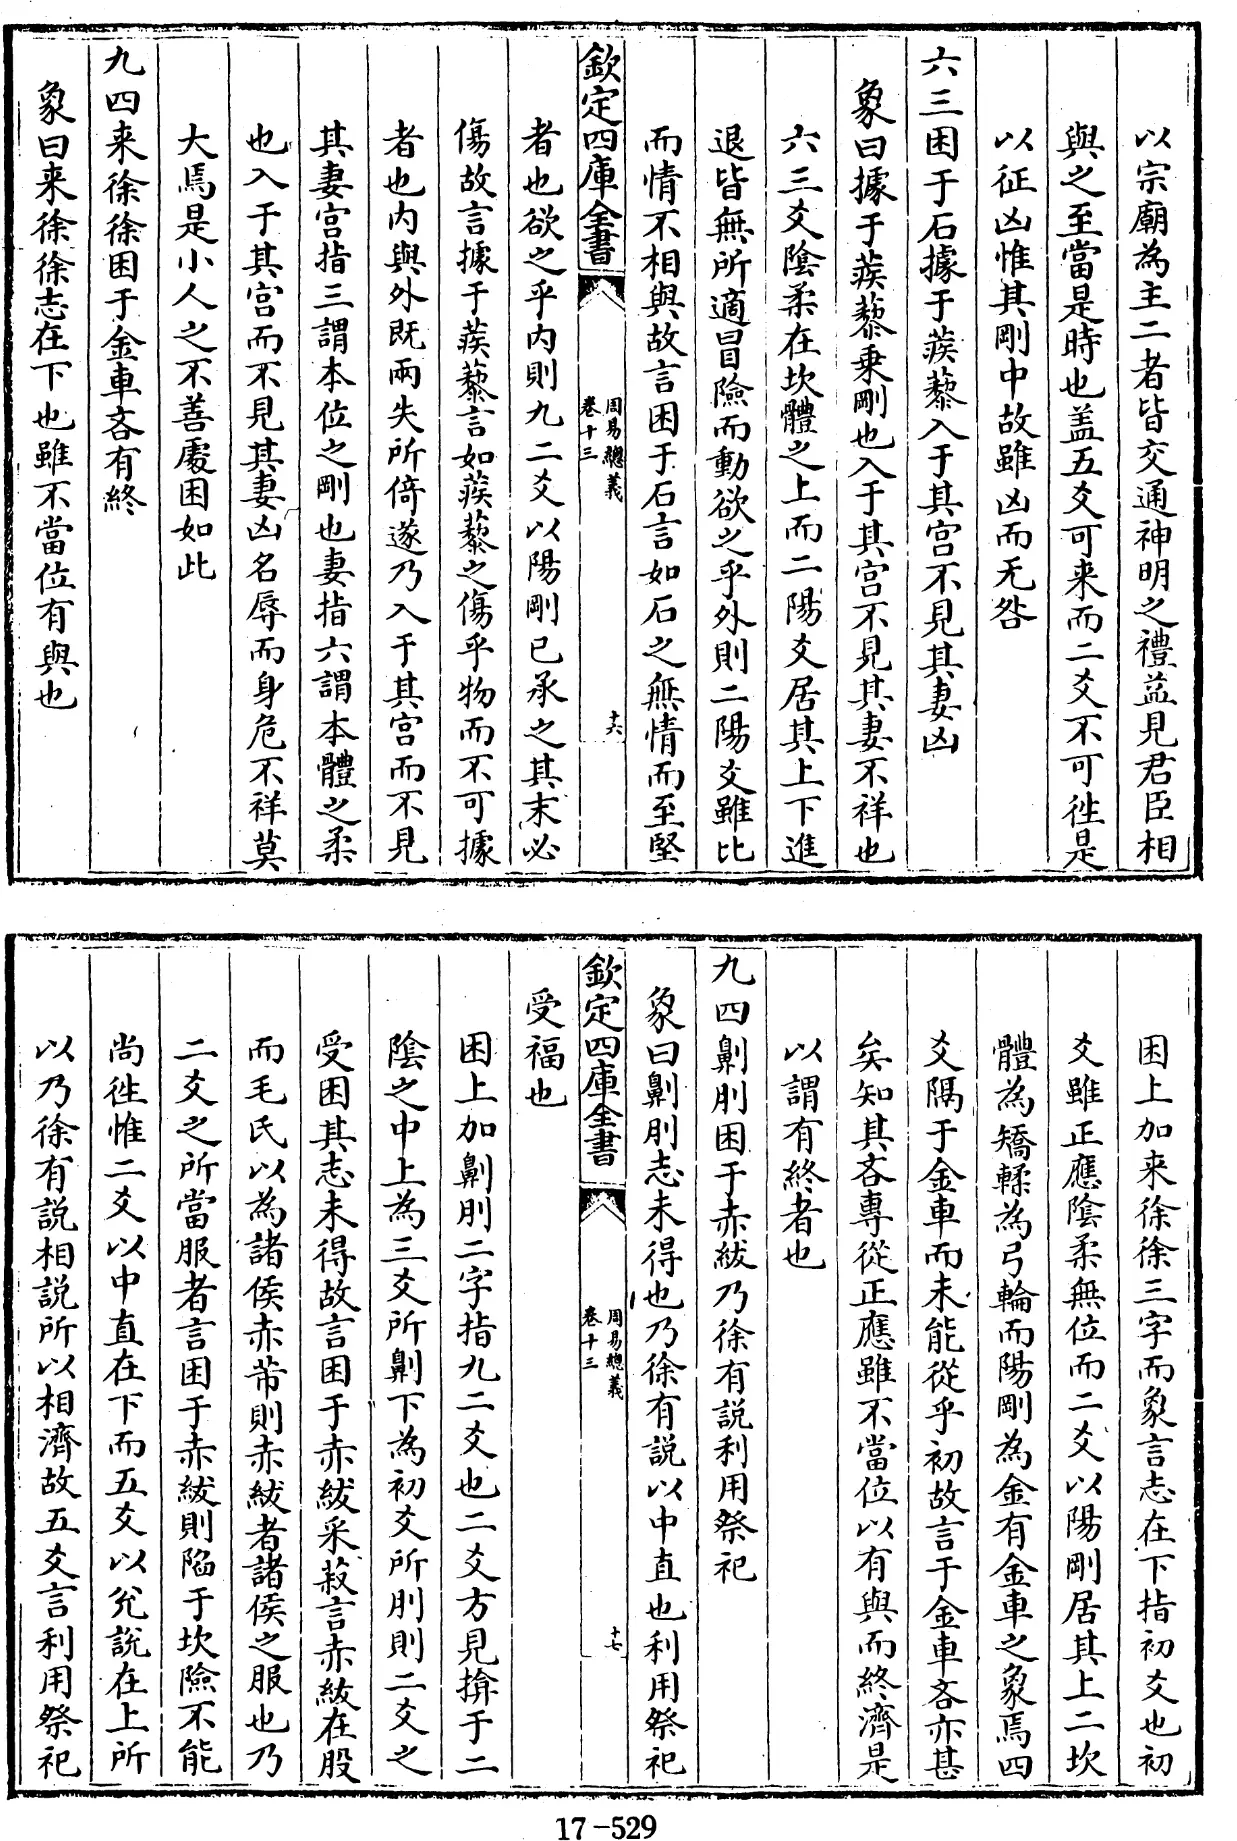 以宗廟為主二者皆交通神明之禮益見君臣相
與之至當是時也盖五爻可来而二爻不可徃是
以征凶惟其剛中故雖凶而无咎
六三困于石據于蒺藜入于其宫不見其妻凶
象曰據于蒺藜乗剛也入于其宫不見其妻不祥也
六三爻隂柔在坎體之上而二陽爻居其上下進
退皆無所適冒險而動欲之乎外則二陽爻雖比
而情不相與故言困于石言如石之無情而至堅
欽定四庫全書
周易總義
卷十三
十六
者也欲之乎内則九二爻以陽剛已承之其末必
傷故言據于蒺藜言如蒺藜之傷乎物而不可據
者也内與外既兩失所倚遂乃入于其宫而不見
其妻宫指三謂本位之剛也妻指六謂本體之柔
也入于其宫而不見其妻凶名辱而身危不祥莫
大焉是小人之不善處困如此
九四来徐徐困于金車吝有終
象曰来徐徐志在下也雖不當位有與也
困上加来徐徐三字而象言志在下指初爻也初
爻雖正應隂柔無位而二爻以陽剛居其上二坎
體為矯輮為弓輪而陽剛為金有金車之象焉四
爻隅于金車而未能從乎初故言于金車吝亦甚
矣知其吝專從正應雖不當位以有與而終濟是
以謂有終者也
九四劓刖困于赤紱乃徐有説利用祭祀
象曰劓刖志未得也乃徐有説以中直也利用祭祀
欽定四庫全書
周易總義
卷十三
十七
受福也
困上加劓刖二字指九二爻也二爻方見揜于二
隂之中上為三爻所劓下為初爻所刖則二爻之
受困其志未得故言困于赤紱采菽言赤紱在股
而毛氏以為諸侯赤芾則赤紱者諸侯之服也乃
二爻之所當服者言困于赤紱則陷于坎險不能
尚徃惟二爻以中直在下而五爻以兊說在上所
以乃徐有説相説所以相濟故五爻言利用祭祀
17-529